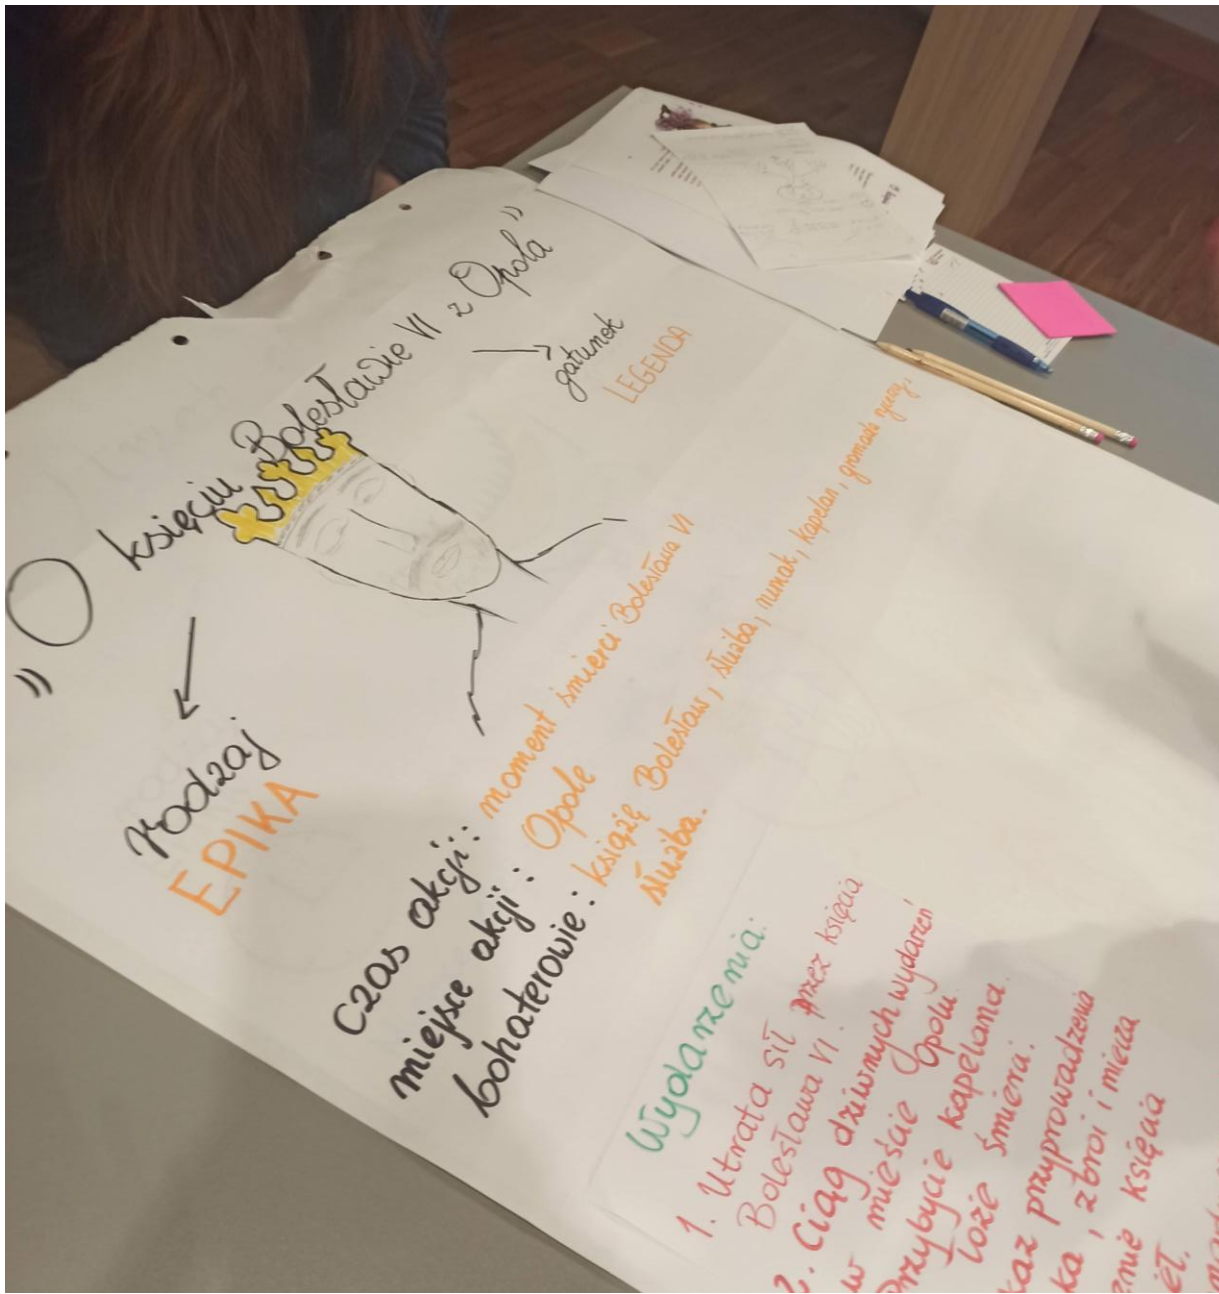 „O księciu Bolesławie VI z Opola”
gatunek
LEGENDA
rodzaj
EPIKA
czas akcji: moment śmierci Bolesława VI
miejsce akcji: Opole
bohaterowie: książę Bolesław, służba, rumak, kapelan, gromada rycerzy,
służba.
Wydarzenia:
1. Utrata sił przez księcia
Bolesława VI.
2. Ciąg dziwnych wydarzeń
w mieście Opolu.
Przybycie kapelana.
łoże śmierci.
kaz przyprowadzenia
ka, zbroi i miecza
znie księcia